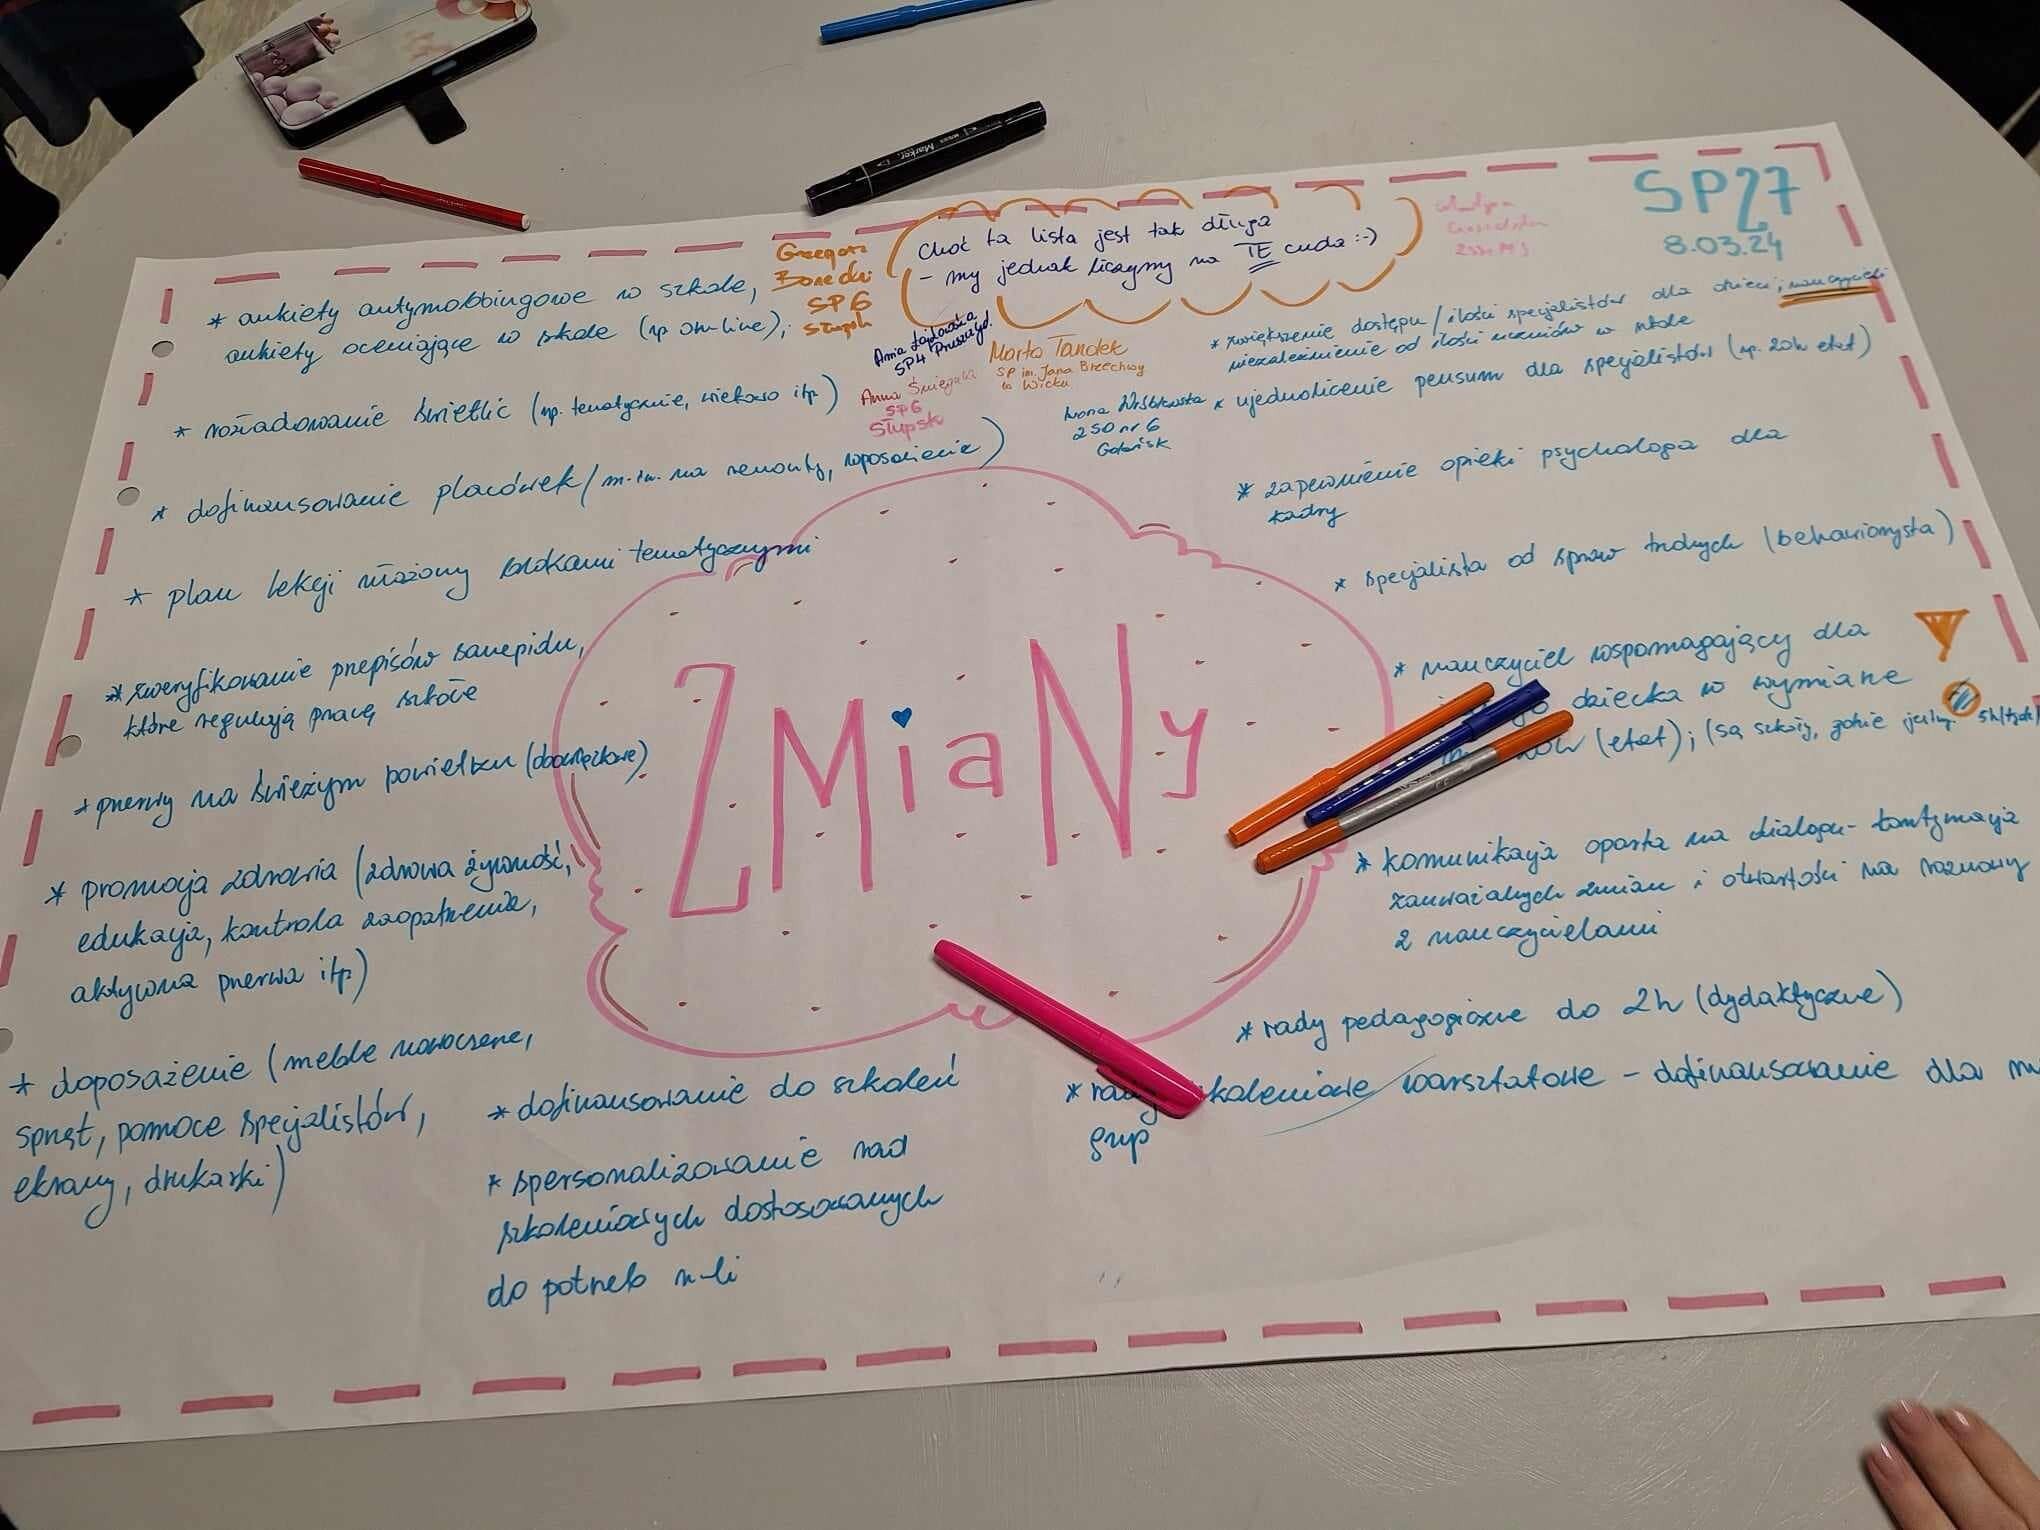 SP27
8.03.24
Choć ta lista jest tak długa
- my jednak liczymy na TE cuda :-)
Grzegorz
SP6
Słupsk
Ania
SP4
Marta Tandek
SP im. Jana Brzechwy
w Wicku
Anna
SP6
Słupsk
Iwona
ZSO nr 6
Gdańsk
* ankiety antymobbingowe w szkole,
ankiety oceniające w skole (np on-line),
* rozładowanie świetlic (np. tematycznie, wiekowo itp)
* dofinansowanie placówek (m.in. na remonty, wyposażenie)
* plan lekcji ułożony blokami tematycznymi
* zweryfikowanie przepisów sanepidu,
które regulują pracę szkole
* przerwy na świeżym powietrzu (obowiązkowe)
* promocja zdrowia (zdrowa żywność,
edukacja, kontrola zaopatrzenia,
aktywna przerwa itp)
* doposażenie (meble nowoczesne,
sprzęt, pomoce specjalistów,
ekrany, drukarki)
* dofinansowanie do szkoleń
* spersonalizowanie rad
szkoleniowych dostosowanych
do potrzeb n-li
ZMiaNy
* zwiększenie dostępu / ilości specjalistów dla dzieci, nauczycieli
niezależnienie od ilości uczniów w szkole
* ujednolicenie pensum dla specjalistów (np. 20h etat)
* zapewnienie opieki psychologa dla
kadry
* specjalista od spraw trudnych (behawiorysta)
* nauczyciel wspomagający dla
dziecka w wymiarze
(etat); (są szkoły, gdzie jest 5h/tydz)
* komunikacja oparta na dialogu - kontynuacja
zauważalnych zmian i otwartości na rozmowy
z nauczycielami
* rady pedagogiczne do 2h (dydaktyczne)
* rady szkoleniowe warsztatowe - dofinansowanie dla
grup
Marker